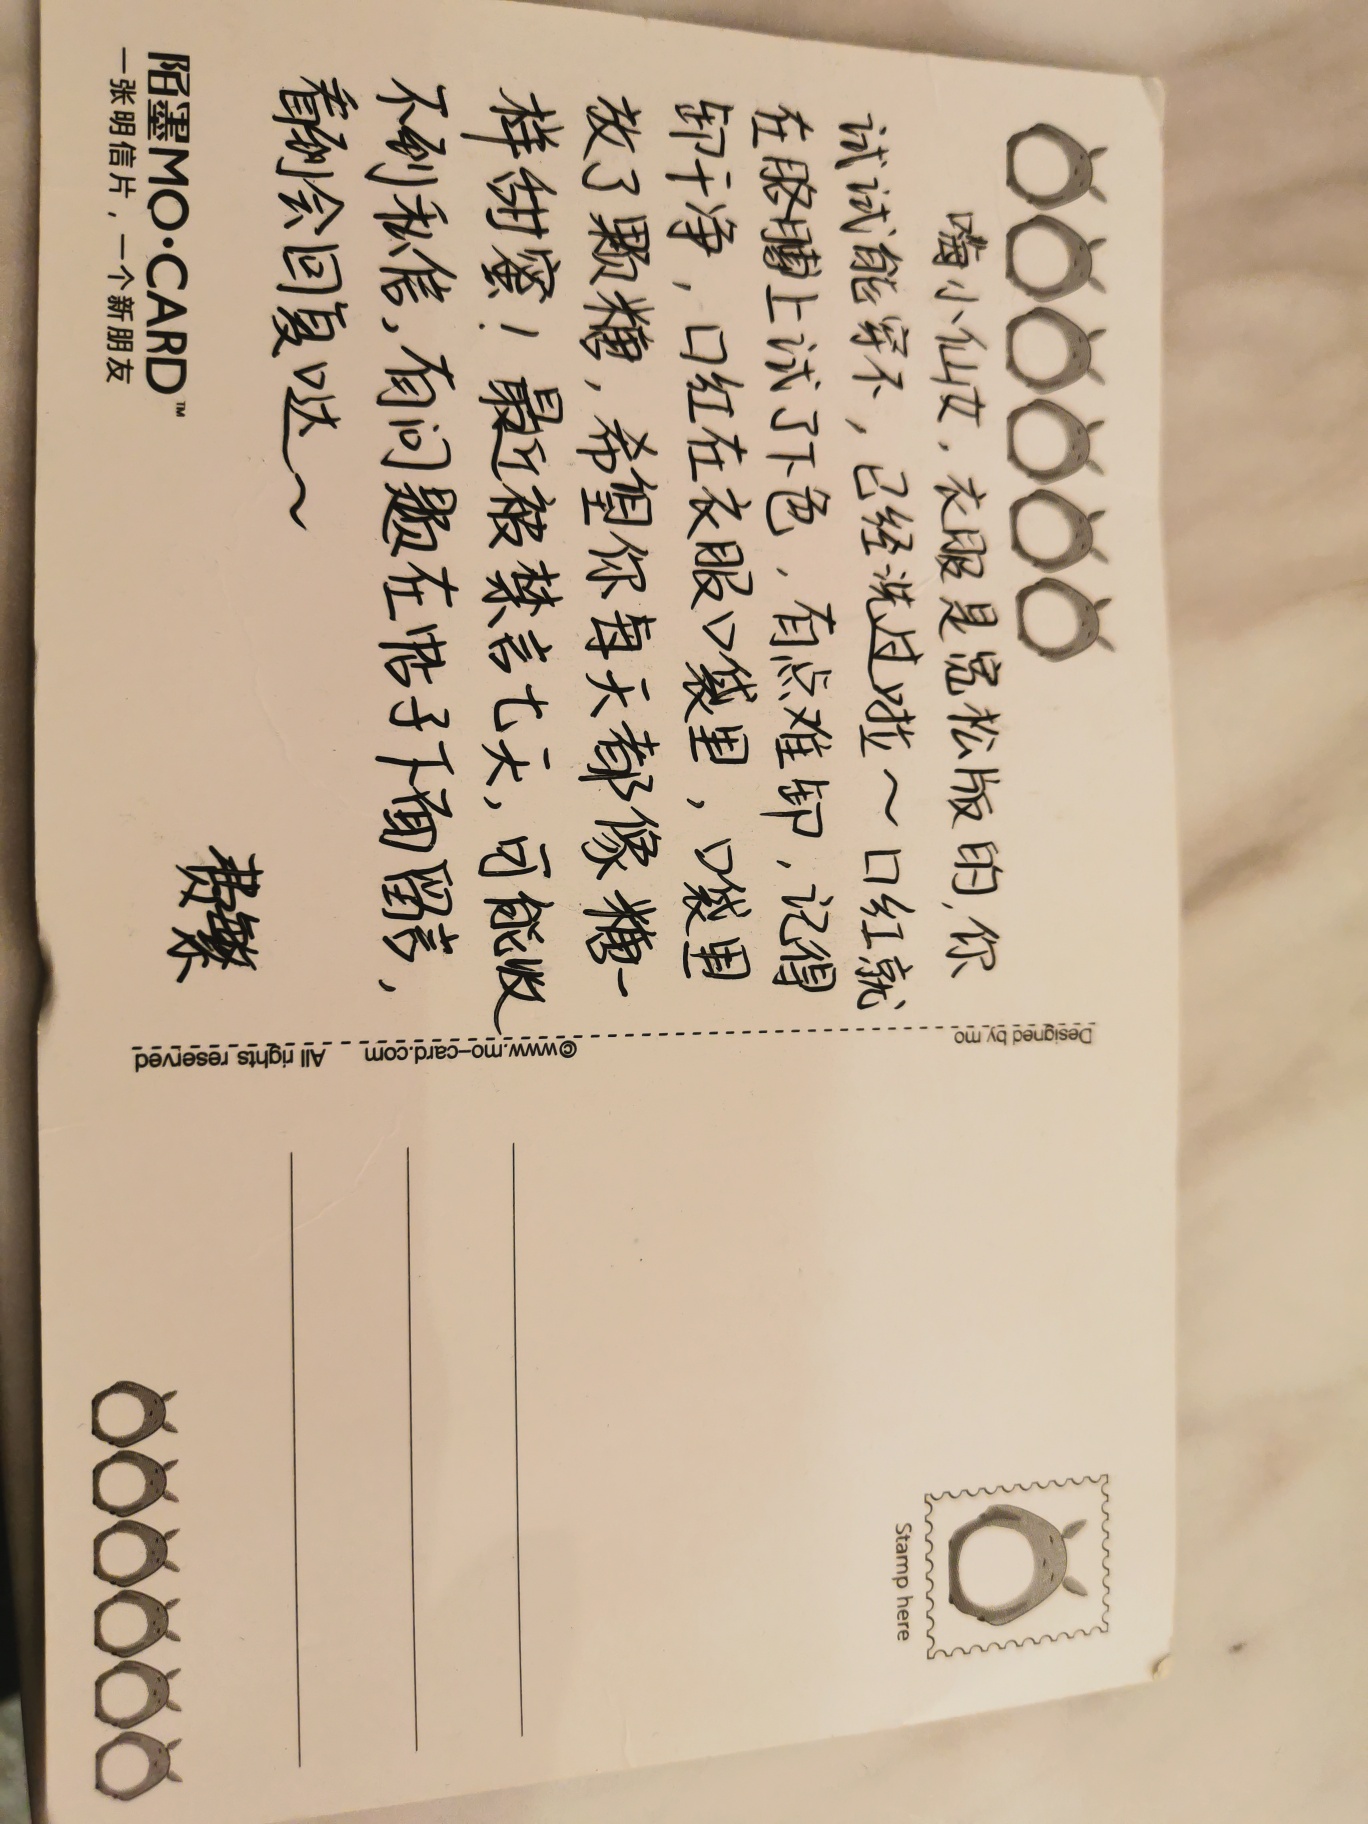 嗨小仙女，衣服是宽松版的，你
试试能穿不，已经洗过啦～口红就
在胳膊上试了下色，有点难卸，记得
卸干净，口红在衣服口袋里，口袋里
放了颗糖，希望你每天都像糖一
样甜蜜！最近被禁言七天，可能收
不到私信，有问题在帖子下面留言，
看到会回复哒～
陌墨MO·CARD™
一张明信片，一个新朋友
Designed by mo
©www.mo-card.com
All rights reserved
Stamp here